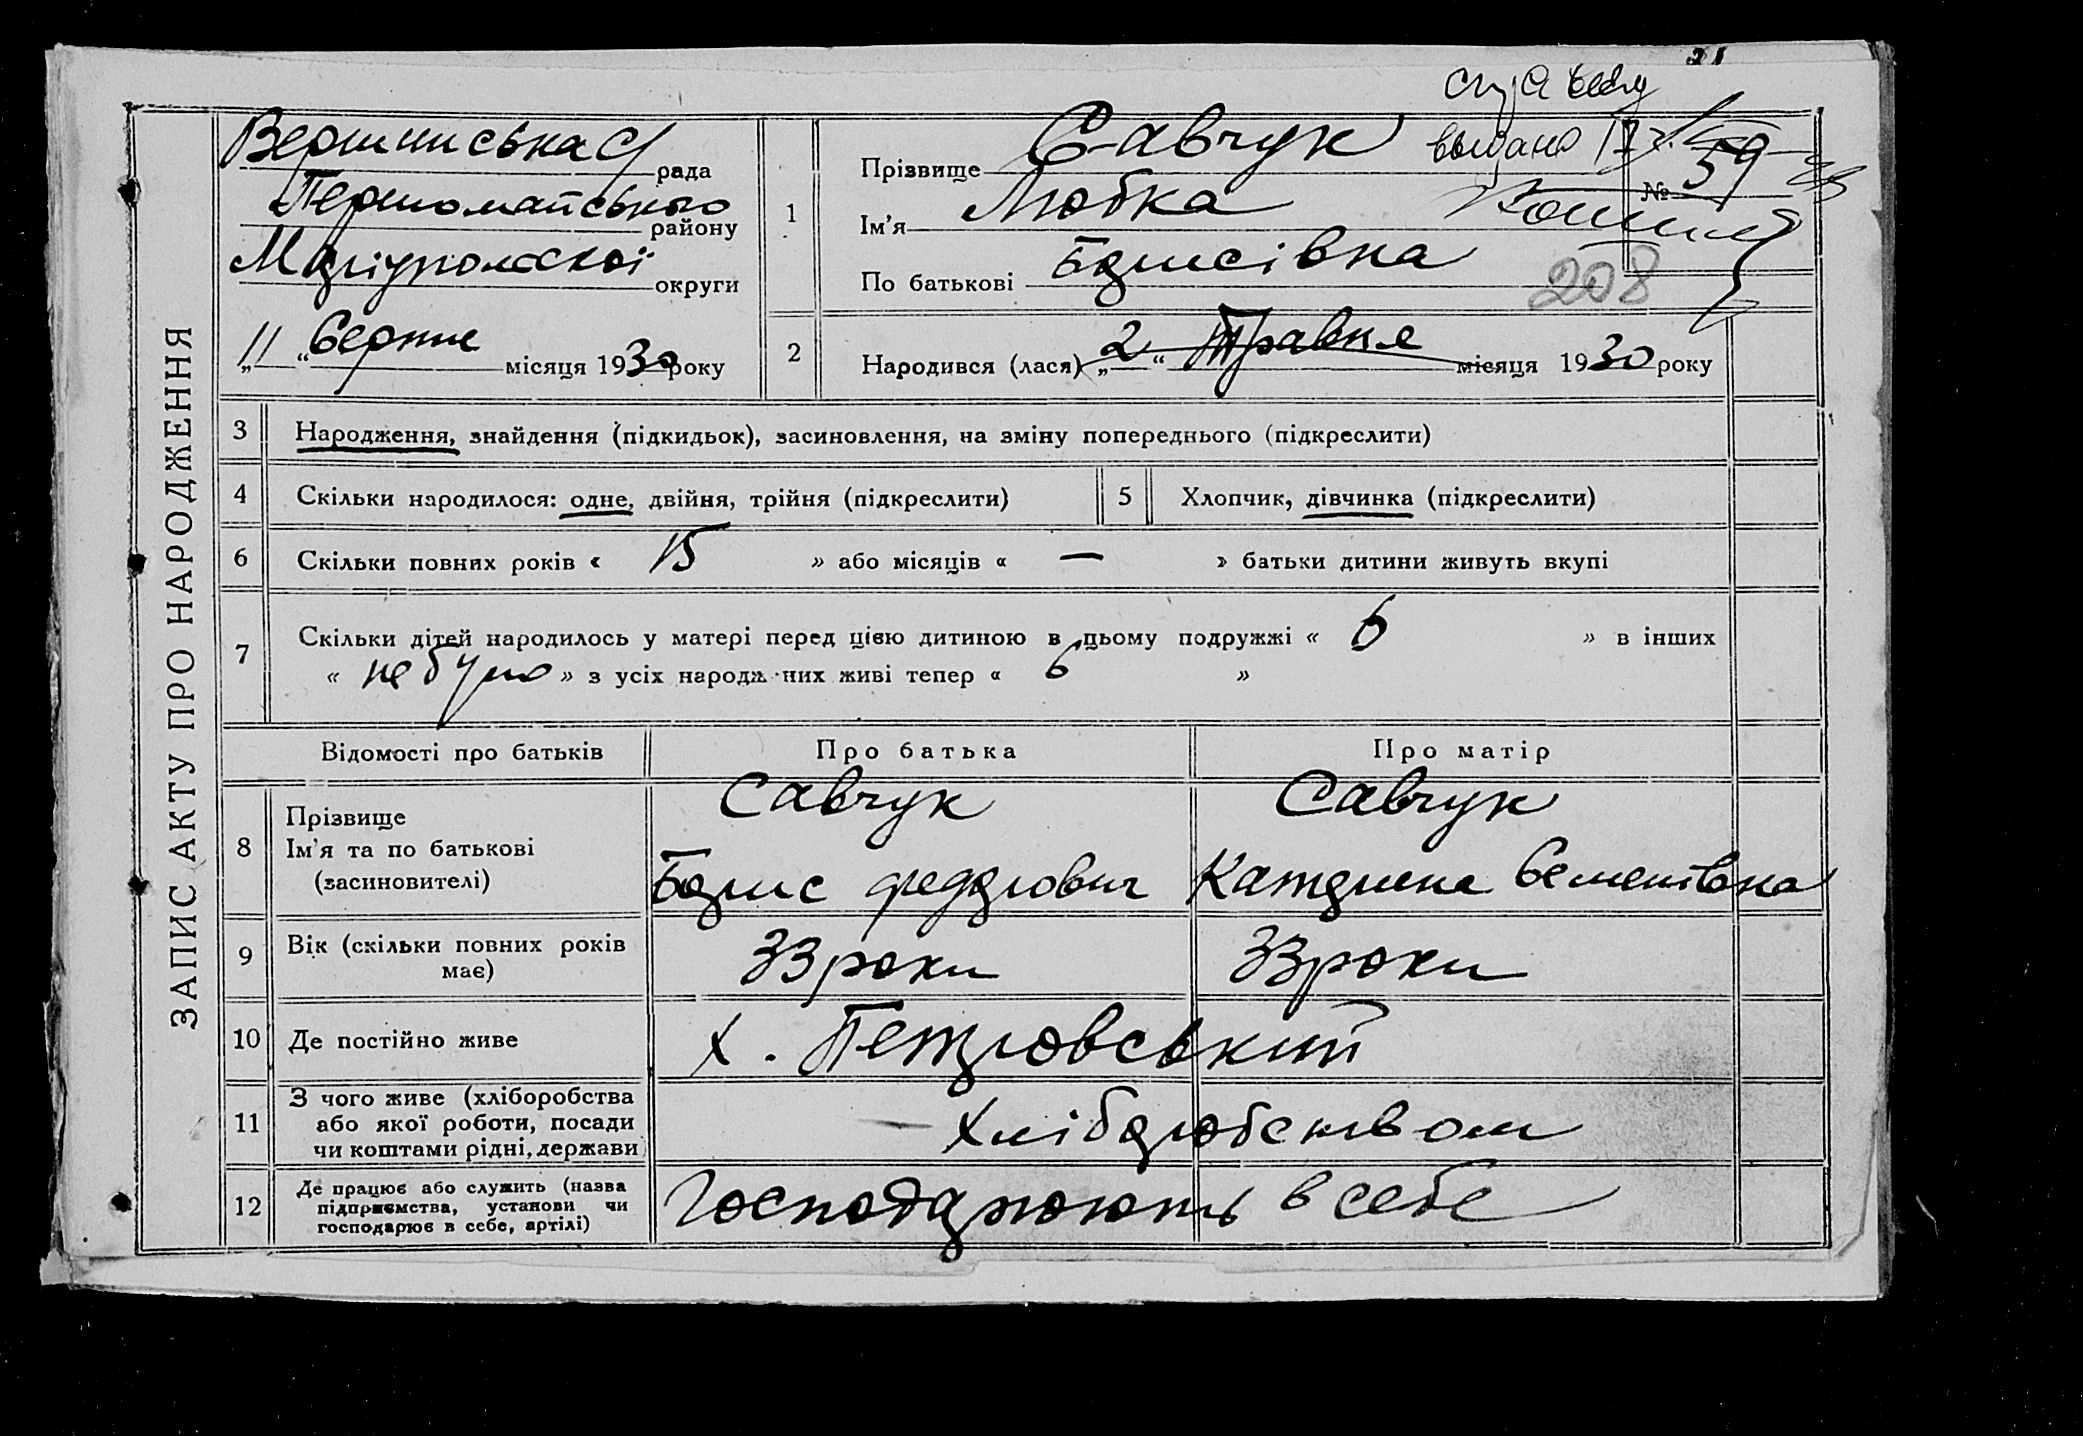 21
ЗАПИС АКТУ ПРО НАРОДЖЕННЯ
Вершинська С/рада
Першомайського району
Маріупольскої округи
„11“ Серпня місяця 1930 року
1
Прізвище Савчук
Ім'я Любка
По батькові Борисівна
выдано 17
№ 59
208
2
Народився (лася) „2“ Травня місяця 1930 року
3 Народження, знайдення (підкидьок), засиновлення, на зміну попереднього (підкреслити)
4 Скільки народилося: одне, двійня, трійня (підкреслити) 5 Хлопчик, дівчинка (підкреслити)
6 Скільки повних років « 15 » або місяців « — » батьки дитини живуть вкупі
7 Скільки дітей народилось у матері перед цією дитиною в цьому подружжі « 6 » в інших
« не було » з усіх народж них живі тепер « 6 »
Відомості про батьків Про батька Про матір
8
Прізвище
Ім'я та по батькові
(засиновителі)
Савчук
Борис Федорович
Савчук
Катерина Семенівна
9
Вік (скільки повних років
має)
33 роки 33 роки
10 Де постійно живе х. Петровський
11
З чого живе (хліборобства
або якої роботи, посади
чи коштами рідні, держави
Хліборобством
12
Де працює або служить (назва
підприємства, установи чи
господарює в себе, артілі)
Господарюють в себе